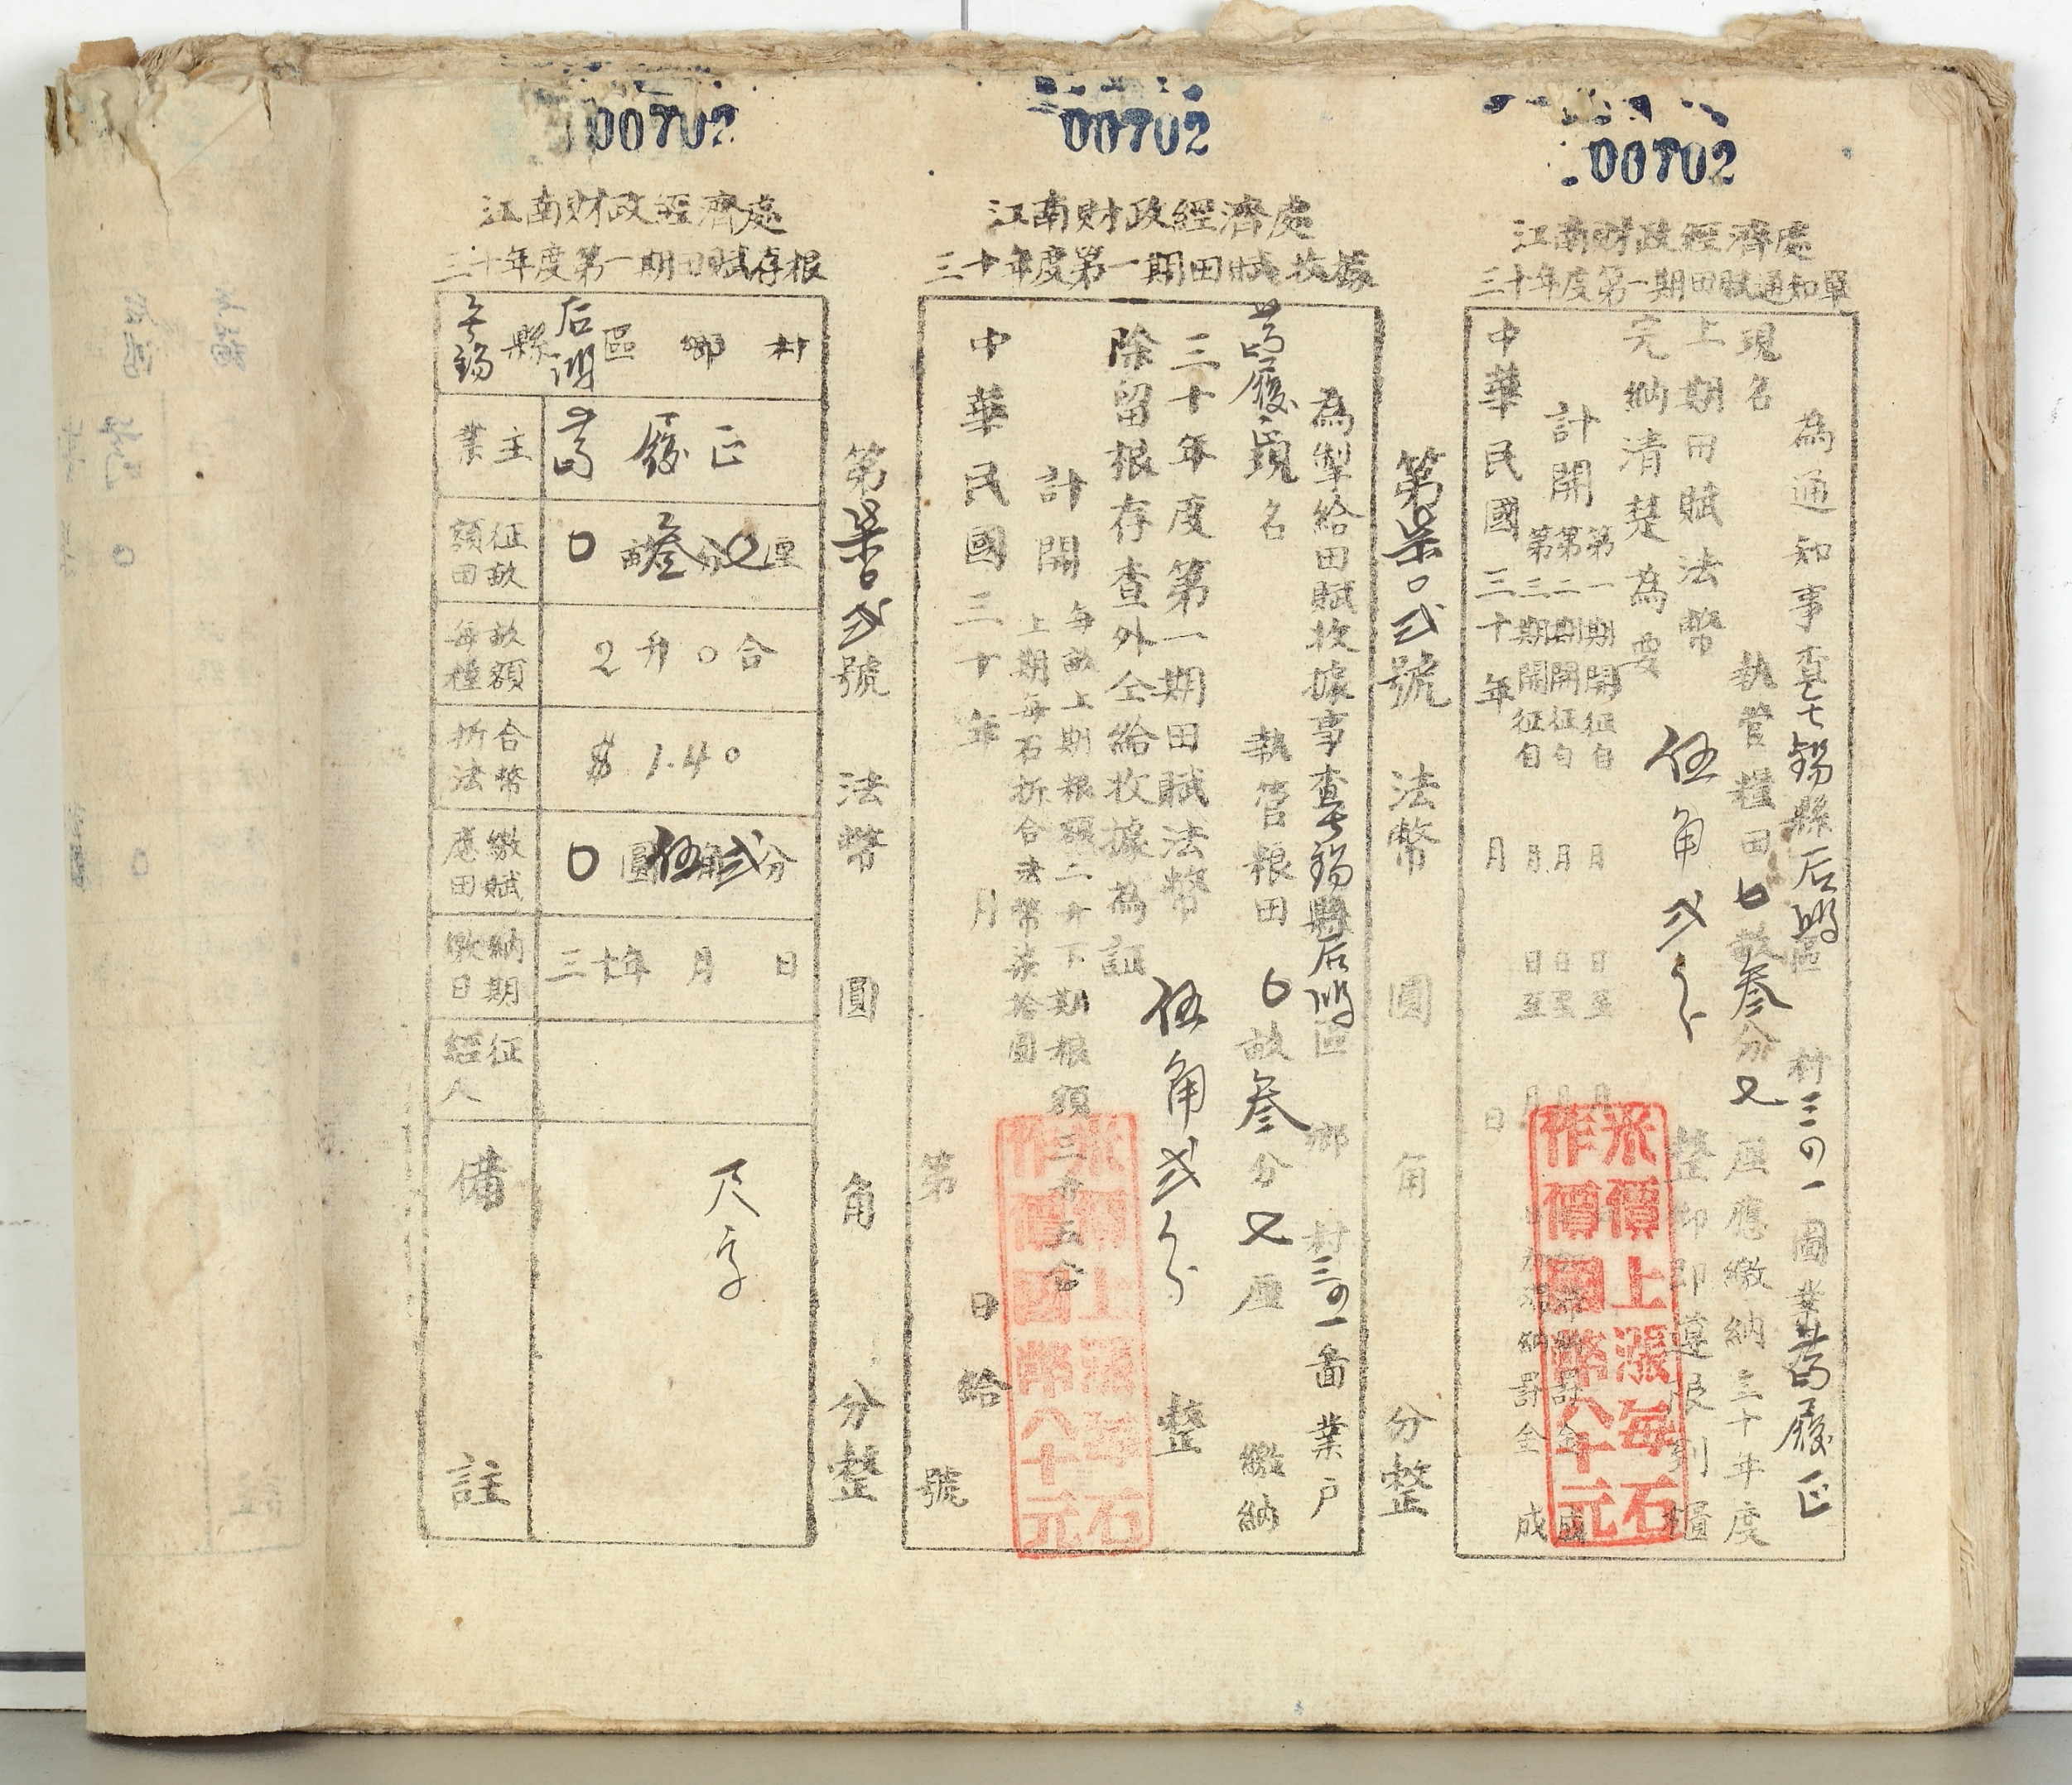 00702
江南財政經濟處
三十年度第一期田賦通知單
為通知事查 錫縣后 區 村三 一圖業 履正
現名 執管糧田 0畝叁分 厘應繳納三十年度
上期田賦法幣 伍角弍分 整 即遵限刻 櫃
完納清楚為要
計開
第一期開征自 月 日至 月
第二期開征自 月 日至 月
第三期開征自 月 日至 月
罰金 成
中華民國三十年 月 日
米價上漲每石
作價國幣八十元
第柒0弍號 法幣 圓 角 分整
00702
江南財政經濟處
三十年度第一期田賦收據
為掣給田賦收據事查 錫縣后 區 鄉 村三 一圖業戶
履正現名 執管粮田 0畝叁分 厘 繳納
三十年度第一期田賦法幣 伍角弍分 整
除留根存查外仝給收據為証
計開
每畝上期粮額二升下期粮額二升五合
上期每石折合法幣柒拾圓
中華民國三十年 月 日給
第 號
米價上漲每石
作價國幣八十元
第柒0弍號 法幣 圓 角 分整
00702
江南財政經濟處
三十年度第一期田賦存根
錫縣 后 區 鄉 村
業主 履正
征畝額田 0畝叁分 厘
每畝額 2升0合
折合法幣 $1.40
應繳田賦 0圓伍角弍分
繳納日期 三十年 月 日
經征人
備註 尺字